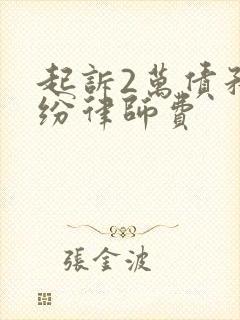 起訴2萬債務
紛律師費
張金波